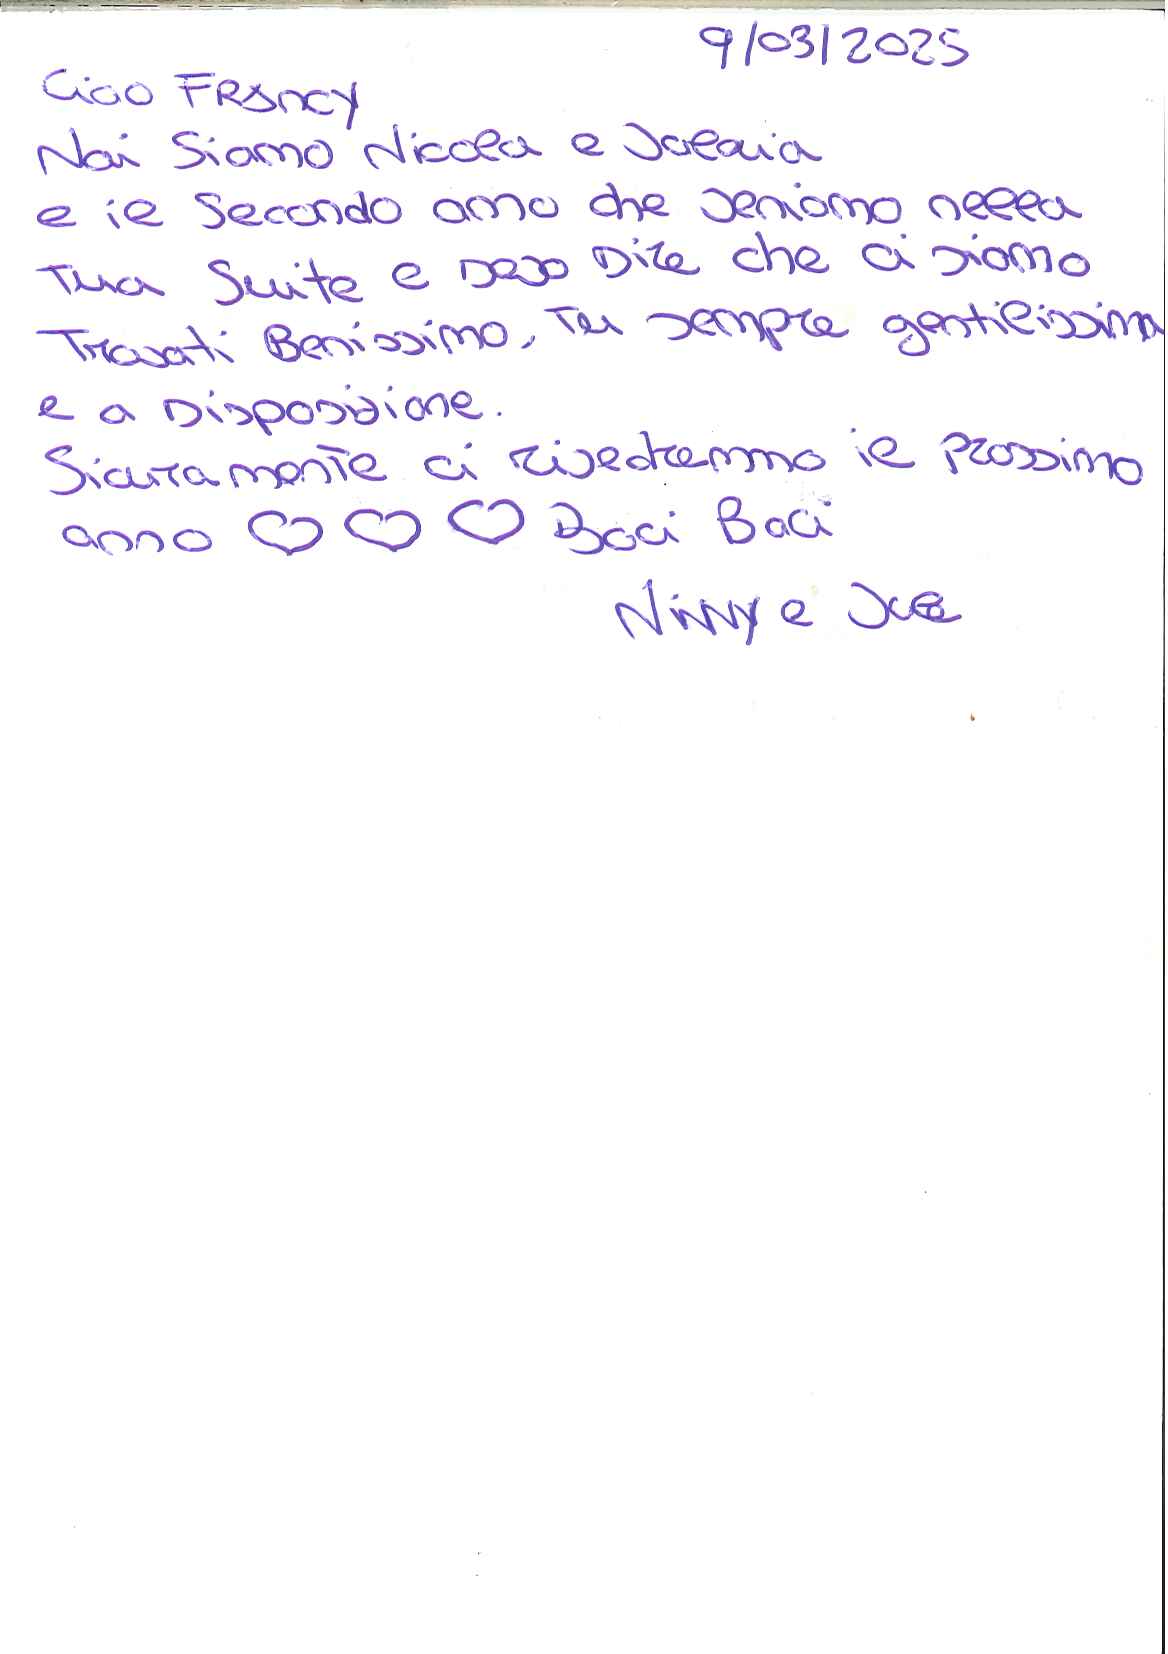 9/03/2025
Ciao FRANCY
Noi Siamo Nicola e Valeria
e il Secondo anno che veniamo nella
Tua Suite e Devo Dire che ci siamo
Trovati Benissimo, Tu sempre gentilissima
e a Disposizione.
Sicuramente ci rivedremmo il Prossimo
anno ♡ ♡ ♡ Baci Baci
NiNNy e Vale